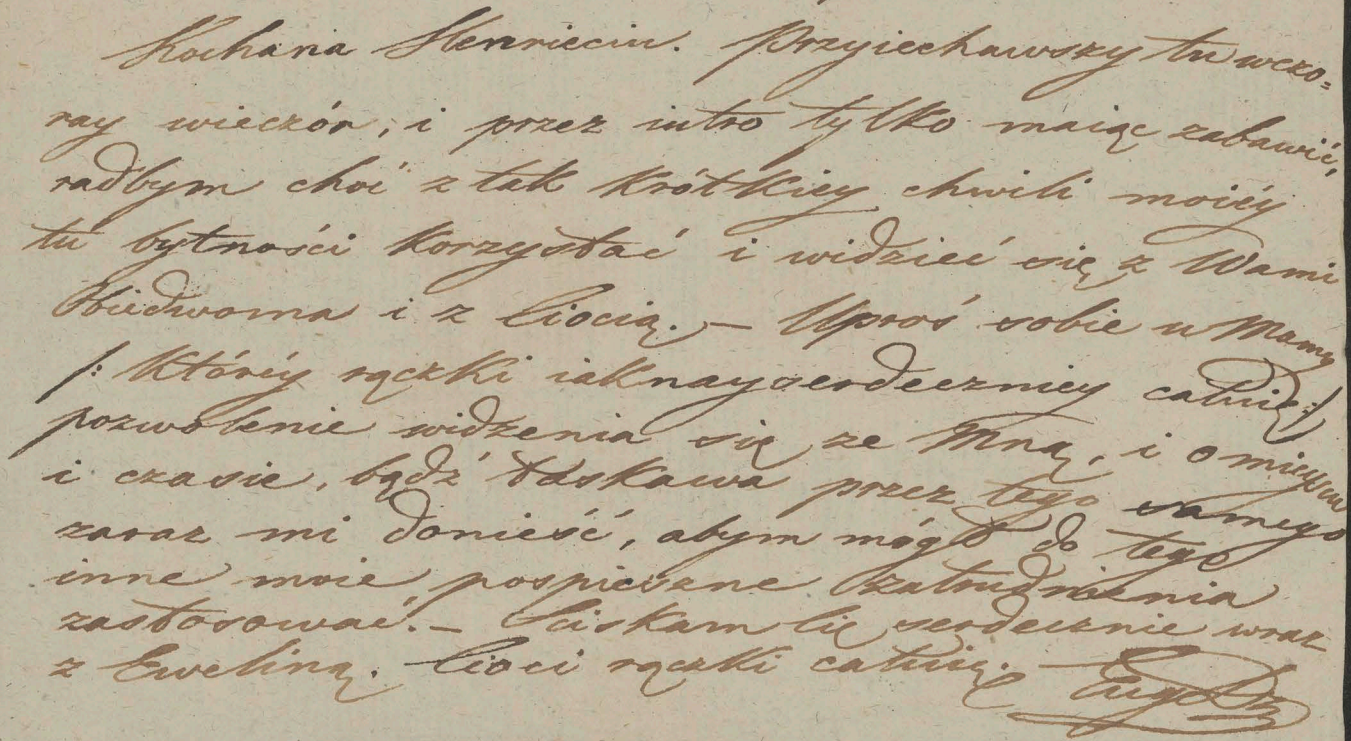 Kochana Henrieciu. Przyiechawszy tu wczo=
ray wieczór, i przez iutro tylko maiąc zabawić,
radbym choć z tak krótkiey chwili moiéy
tu bytności korzystać i widzieć się z Wami
obiedwoma i z Ciocią. – Uproś sobie u Mamy
/: któréy rączki iaknayserdeczniey całuię :/
pozwolenie widzenia się ze Mną, i o mieyscu
i czasie, bądź łaskawa przez tego samego
zaraz mi donieść, abym mógł do tego
inne moie pospieszne zatrudnienia
zastosować. – Sciskam Cię serdecznie wraz
z Eweliną. Cioci rączki całuię. –